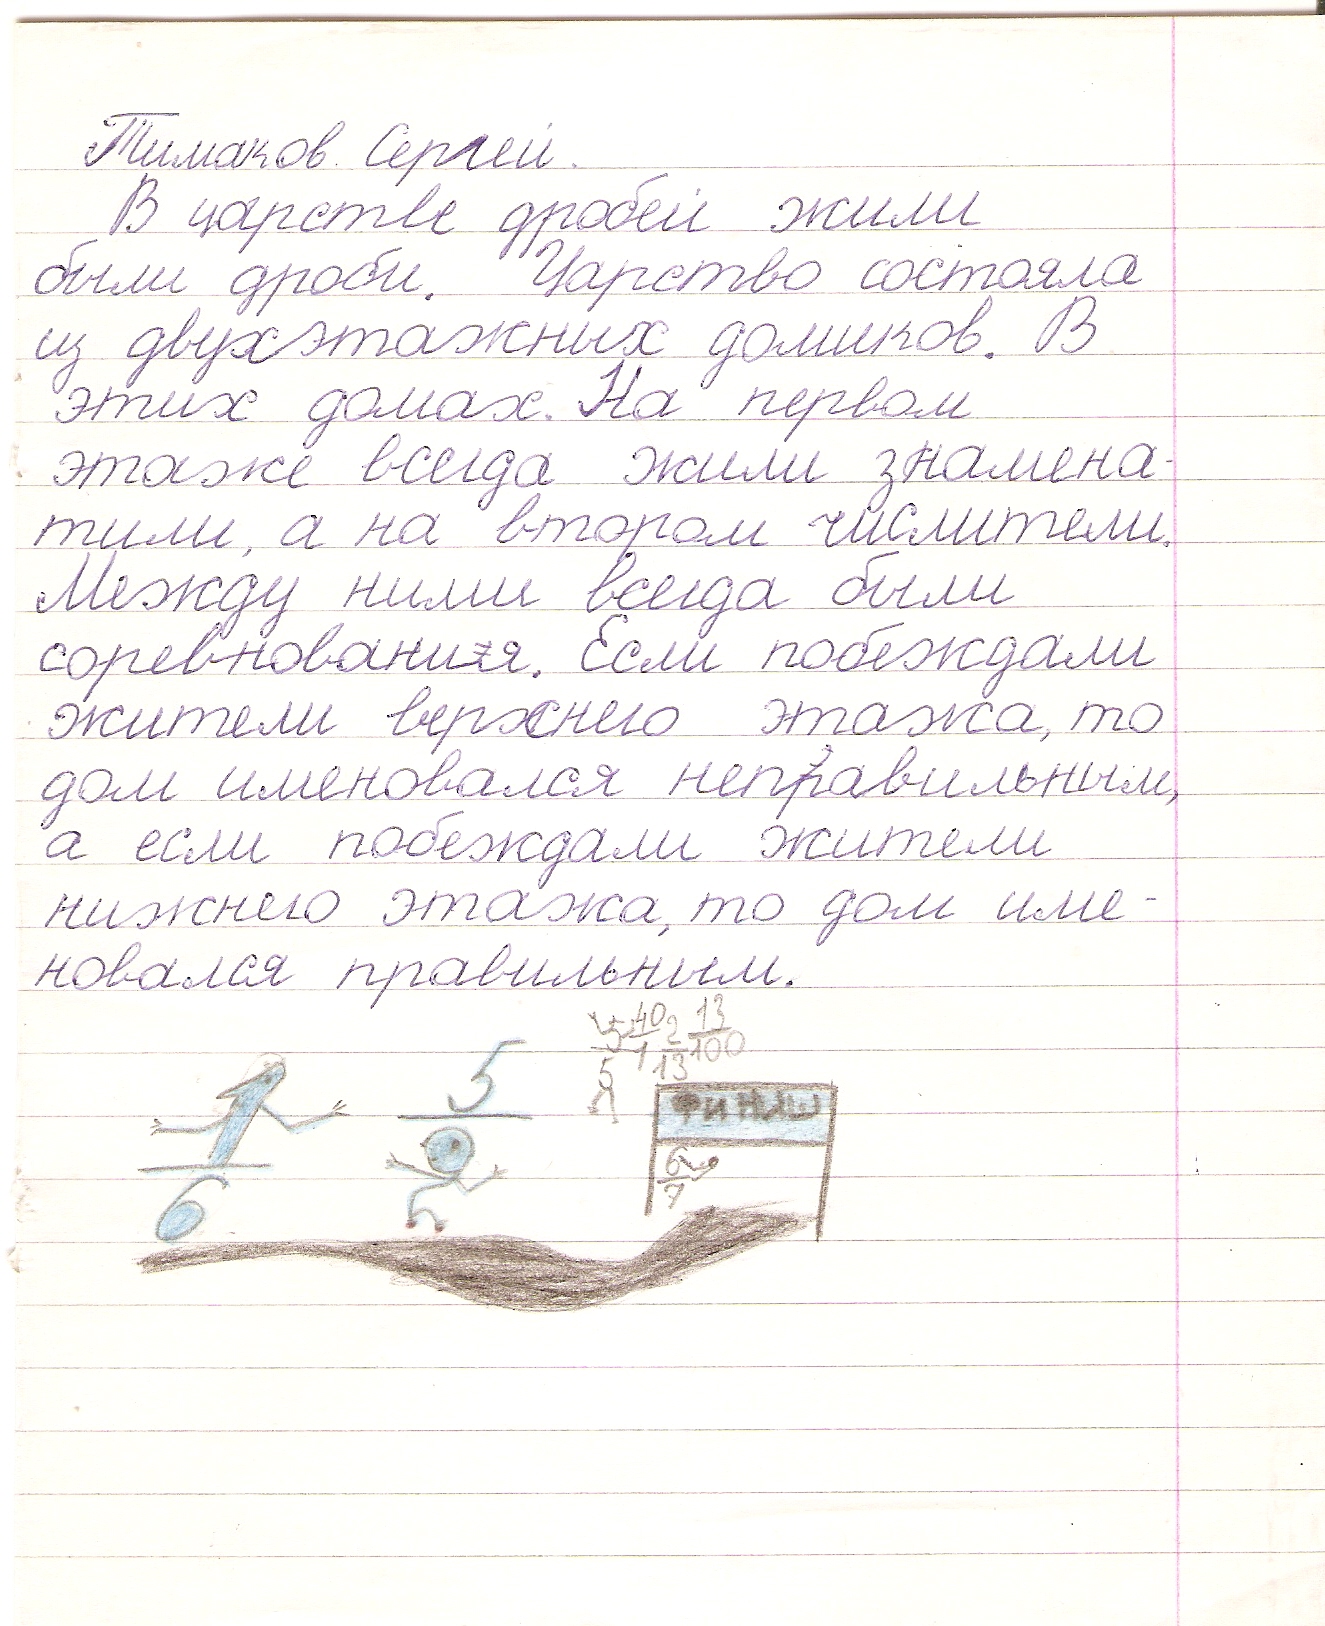 Тимаков Сергей.
В царстве дробей жили
были дроби. Царство состояла
из двухэтажных домиков. В
этих домах. На первом
этаже всегда жили знамена-
тили, а на втором числители.
Между ними всегда были
соревнования. Если побеждали
жители верхнего этажа, то
дом именовался неправильным,
а если побеждали жители
нижнего этажа, то дом име-
новался правильным.
1
6
5
5
5
40
1
2
13
13
100
Финиш
6
7